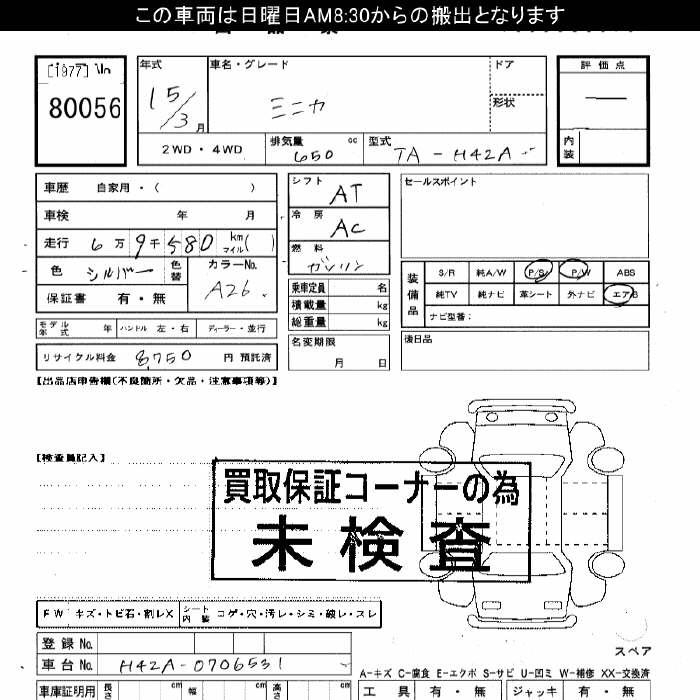 この車両は日曜日AM8:30からの搬出となります
[1977]
80056
年式
15/3月
車名・グレード
ミニカ
ドア
形状
評価点
内装
2WD・4WD
排気量 650 cc
型式 TA-H42A
車歴 自家用・( )
車検 年 月
走行 6万9千580 km マイル( )
色 シルバー 色替
カラーNo. A26
保証書 有・無
モデル年式 年 ハンドル 左・右 ディーラー・並行
リサイクル料金 8,750 円 預託済
シフト AT
冷房 AC
燃料 ガソリン
乗車定員 名
積載量 kg
総重量 kg
名変期限
月 日
セールスポイント
装備品
S/R 純A/W P/S P/W ABS
純TV 純ナビ 革シート 外ナビ エアB
ナビ型番:
後日品
【出品店申告欄(不良箇所・欠品・注意事項等)】
【検査員記入】
買取保証コーナーの為
未検査
FW キズ・トビ石・割レX シート内装 コゲ・穴・汚レ・シミ・破レ・スレ
登録No.
車台No. H42A-0706531
スペア
A-キズ C-腐食 E-エクボ S-サビ U-凹ミ W-補修 XX-交換済
車庫証明用 長さ cm 幅 cm 高さ cm
工具 有・無 ジャッキ 有・無